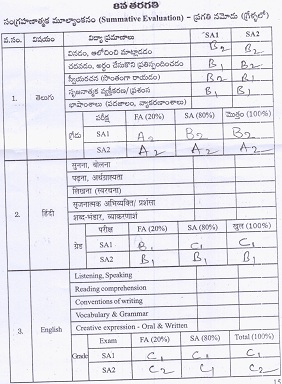 8వ తరగతి
సంగ్రహణాత్మక మూల్యాంకనం (Summative Evaluation) – ప్రగతి నమోదు (గ్రేడ్లలో)
వ.నం. విషయం విద్యా ప్రమాణాలు SA1 SA2
వినడం, ఆలోచించి మాట్లాడడం B2 B2
చదవడం, అర్థం చేసుకొని ప్రతిస్పందించడం B1 B2
స్వీయరచన (సొంతంగా రాయడం) B2 B1
సృజనాత్మక వ్యక్తీకరణ/ ప్రశంస B1 B1
భాషాంశాలు (పదజాలం, వ్యాకరణాంశాలు)
1. తెలుగు
గ్రేడు పరీక్ష FA (20%) SA (80%) మొత్తం (100%)
SA1 A2 B2 B2
SA2 A2 A2 A2
सुनना, बोलना
पढ़ना, अर्थग्राह्यता
लिखना (स्वरचना)
सृजनात्मक अभिव्यक्ति/ प्रशंसा
शब्द-भंडार, व्याकरणांश
2. हिंदी
ग्रेड परीक्षा FA (20%) SA (80%) कुल (100%)
SA1 B1 C1 C1
SA2 B1 B1 B1
Listening, Speaking
Reading comprehension
Conventions of writing
Vocabulary & Grammar
Creative expression - Oral & Written
3. English
Grade Exam FA (20%) SA (80%) Total (100%)
SA1 C1 C1 C1
SA2 C2 C1 C2
15